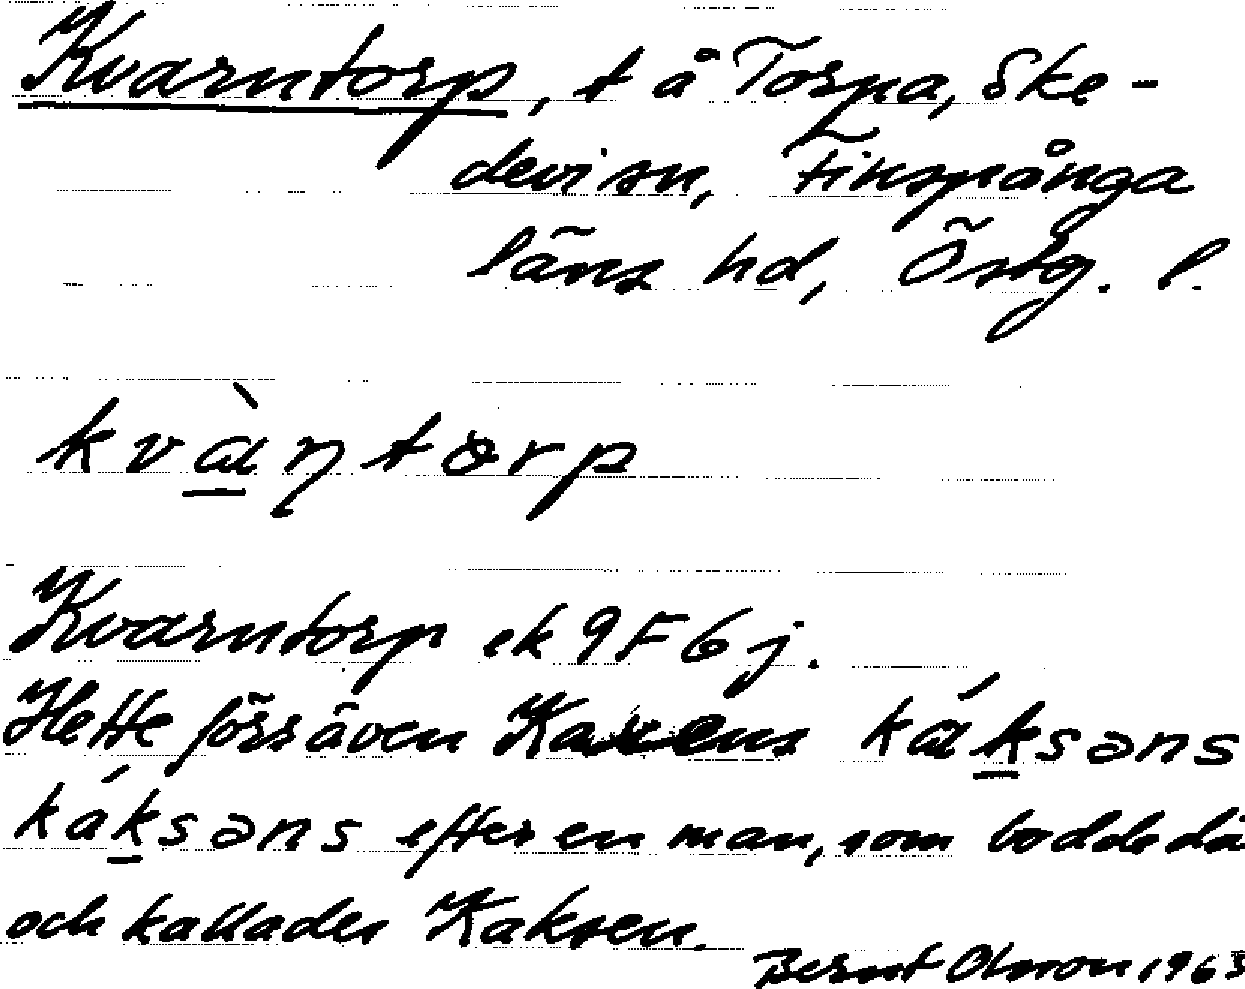 Kvarntorp, t å Torpa, Ske-
devi sn, Finspånga
läns hd, Östg. l.
kvàɳtɵrp
Kvarntorp ek 9F6j.
Hette förr även Kaxens káksəns
káksəns efter en man, som bodde då
och kallades Kaksen.
Bernt Olsson 1963